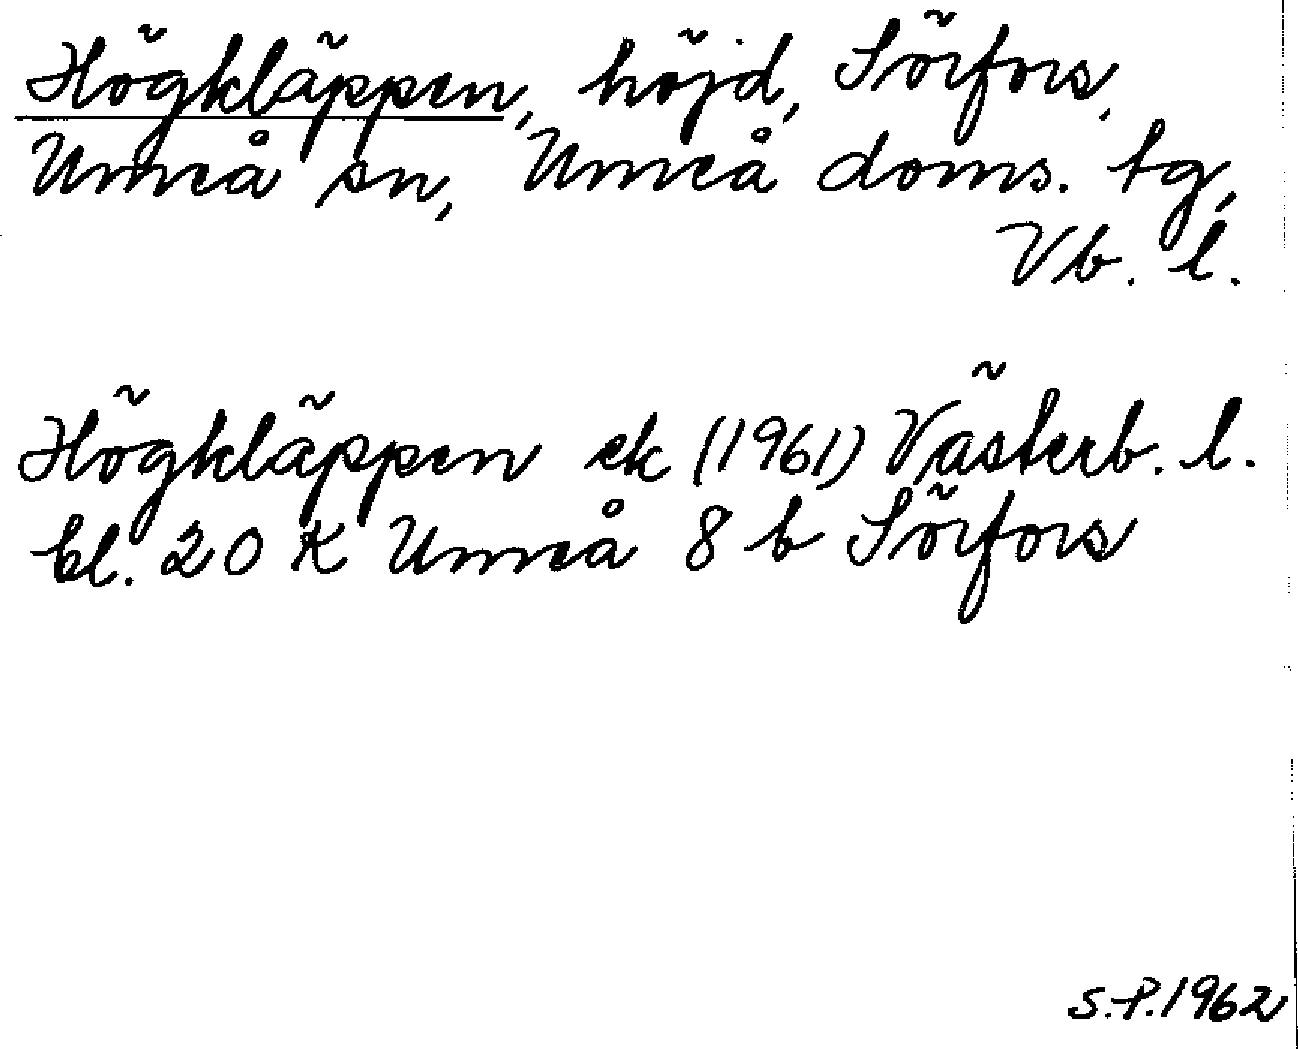 Högkläppen, höjd, Sörfors,
Umeå sn, Umeå doms. tg,
Vb. l.
Högkläppen ek (1961) Västerb. l.
bl. 20 K Umeå 8 b Sörfors
S.P. 1962